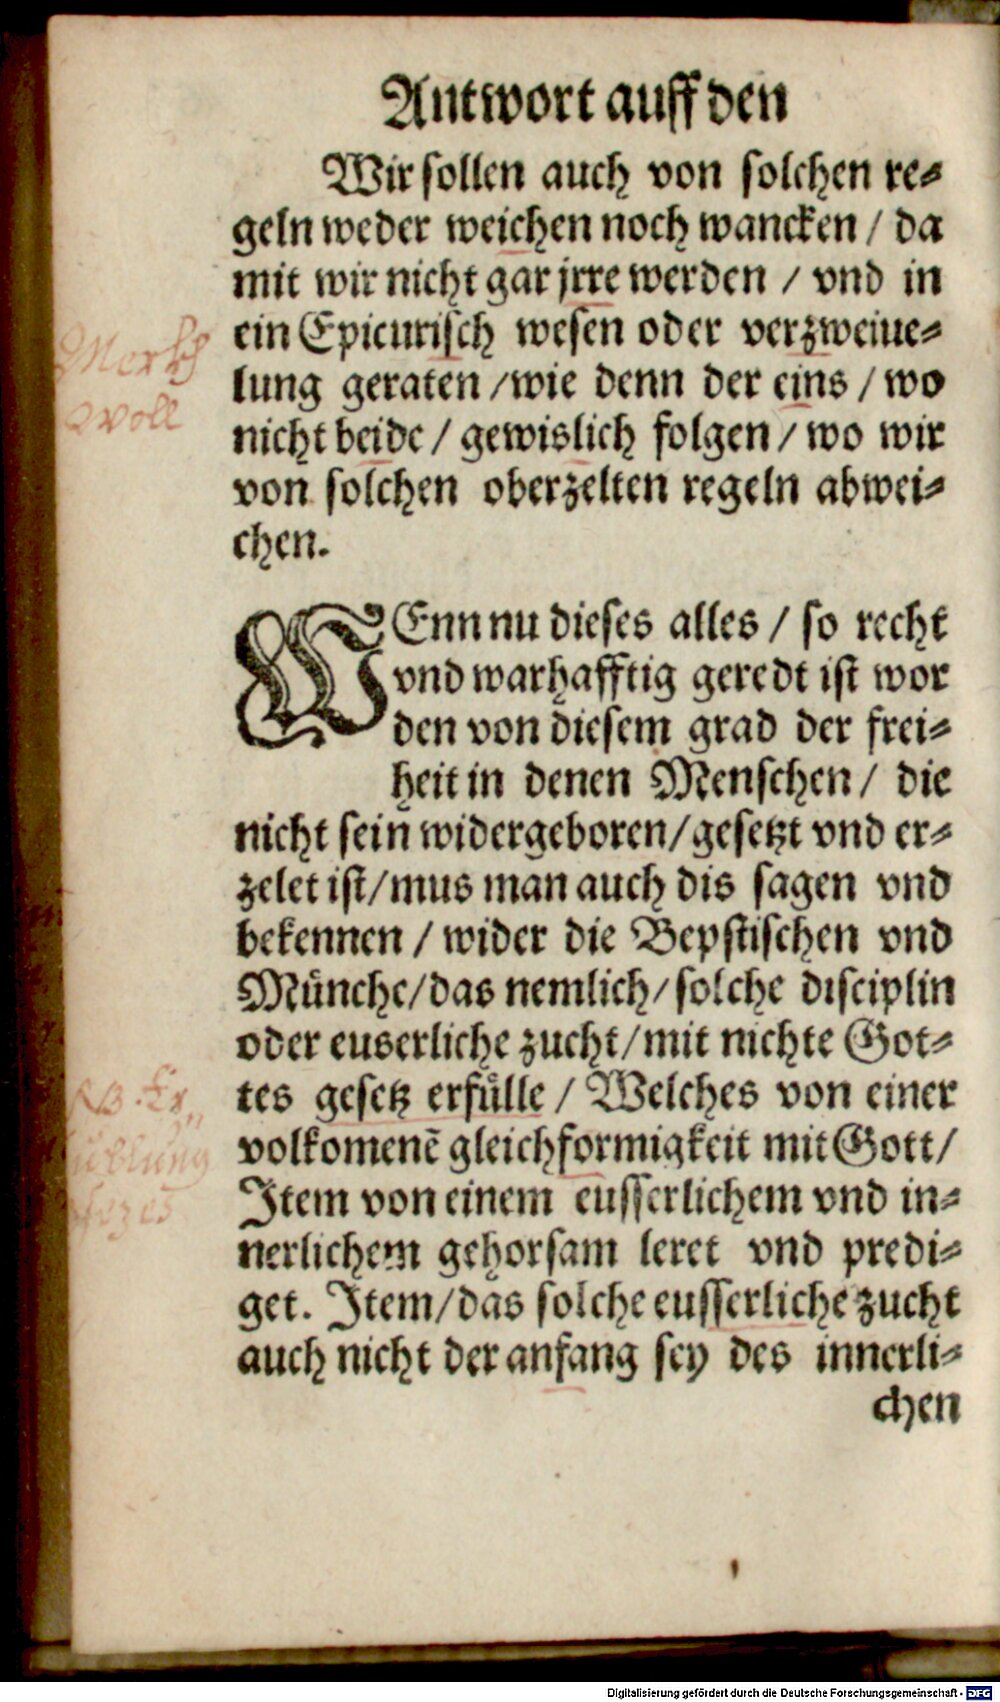 Antwort auff den
Wir sollen auch von solchen re⸗
geln weder weichen noch wancken / da
mit wir nicht gar jrre werden / vnd in
ein Epicurisch wesen oder verzweiue⸗
lung geraten / wie denn der eins / wo
nicht beide / gewislich folgen / wo wir
von solchen oberzelten regeln abwei⸗
chen.
Merkh
woll
WEnn nu dieses alles / so recht
vnd warhafftig geredt ist wor
den von diesem grad der frei⸗
heit in denen Menschen / die
nicht sein widergeboren / gesetzt vnd er⸗
zelet ist / mus man auch dis sagen vnd
bekennen / wider die Bepstischen vnd
Mu&#x0364;nche / das nemlich / solche disciplin
oder euserliche zucht / mit nichte Got⸗
tes gesetz erfu&#x0364;lle / Welches von einer
volkomenē gleichformigkeit mit Gott /
Item von einem eusserlichem vnd in⸗
nerlichem gehorsam leret vnd predi⸗
get. Item / das solche eusserliche zucht
auch nicht der anfang sey des innerli⸗
chen
Digitalisierung gefördert durch die Deutsche Forschungsgemeinschaft - DFG